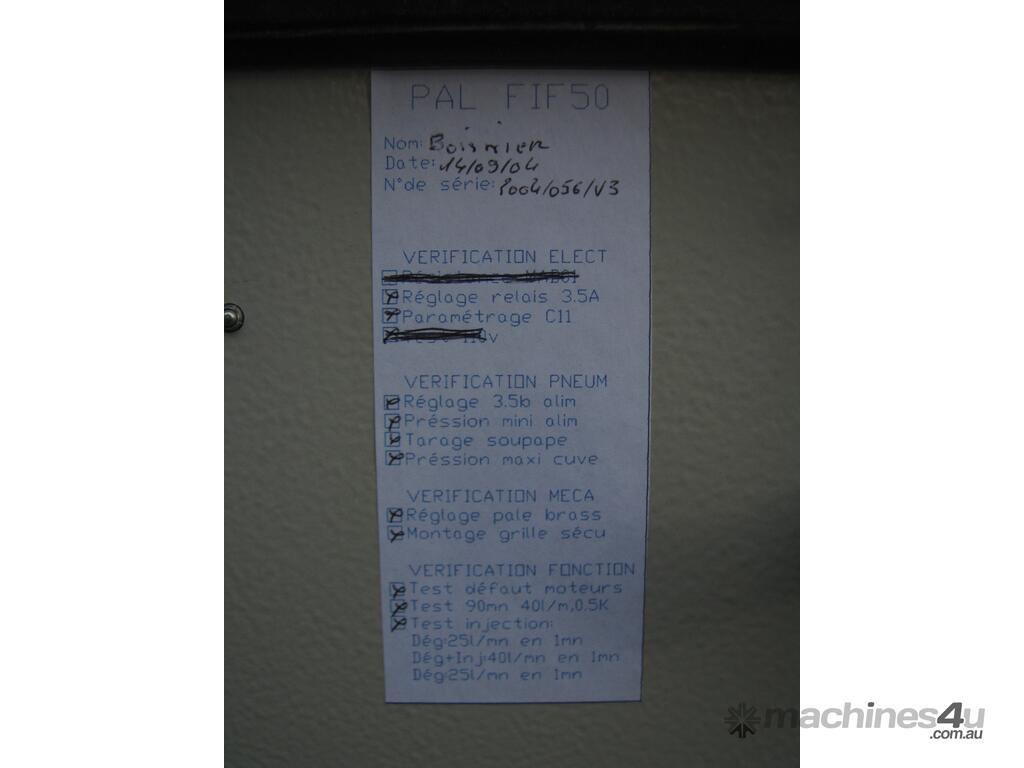 PAL FIF50
Nom: Boisnier
Date: 14/09/04
N°de série: P004/056/V3
VERIFICATION ELECT
Réglage relais 3.5A
Paramétrage C11
Test 110v
VERIFICATION PNEUM
Réglage 3.5b alim
Préssion mini alim
Tarage soupape
Préssion maxi cuve
VERIFICATION MECA
Réglage pale brass
Montage grille sécu
VERIFICATION FONCTION
Test défaut moteurs
Test 90mn 40l/m,0.5K
Test injection:
Dég:25l/mn en 1mn
Dég+Inj:40l/mn en 1mn
Dég:25l/mn en 1mn
machines4u
.com.au